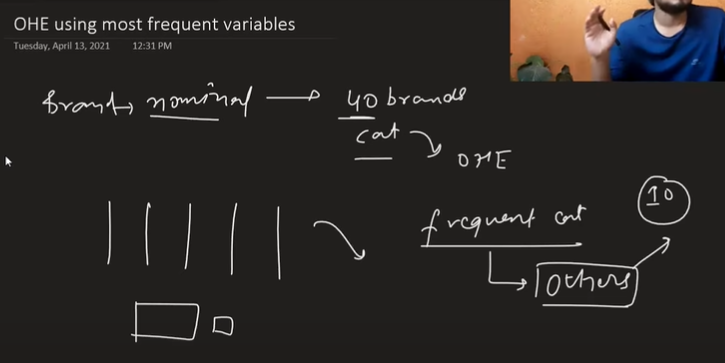 OHE using most frequent variables
Tuesday, April 13, 2021 12:31 PM
brand, nominal → 40 brands
cat
OHE
frequent cat
10
others